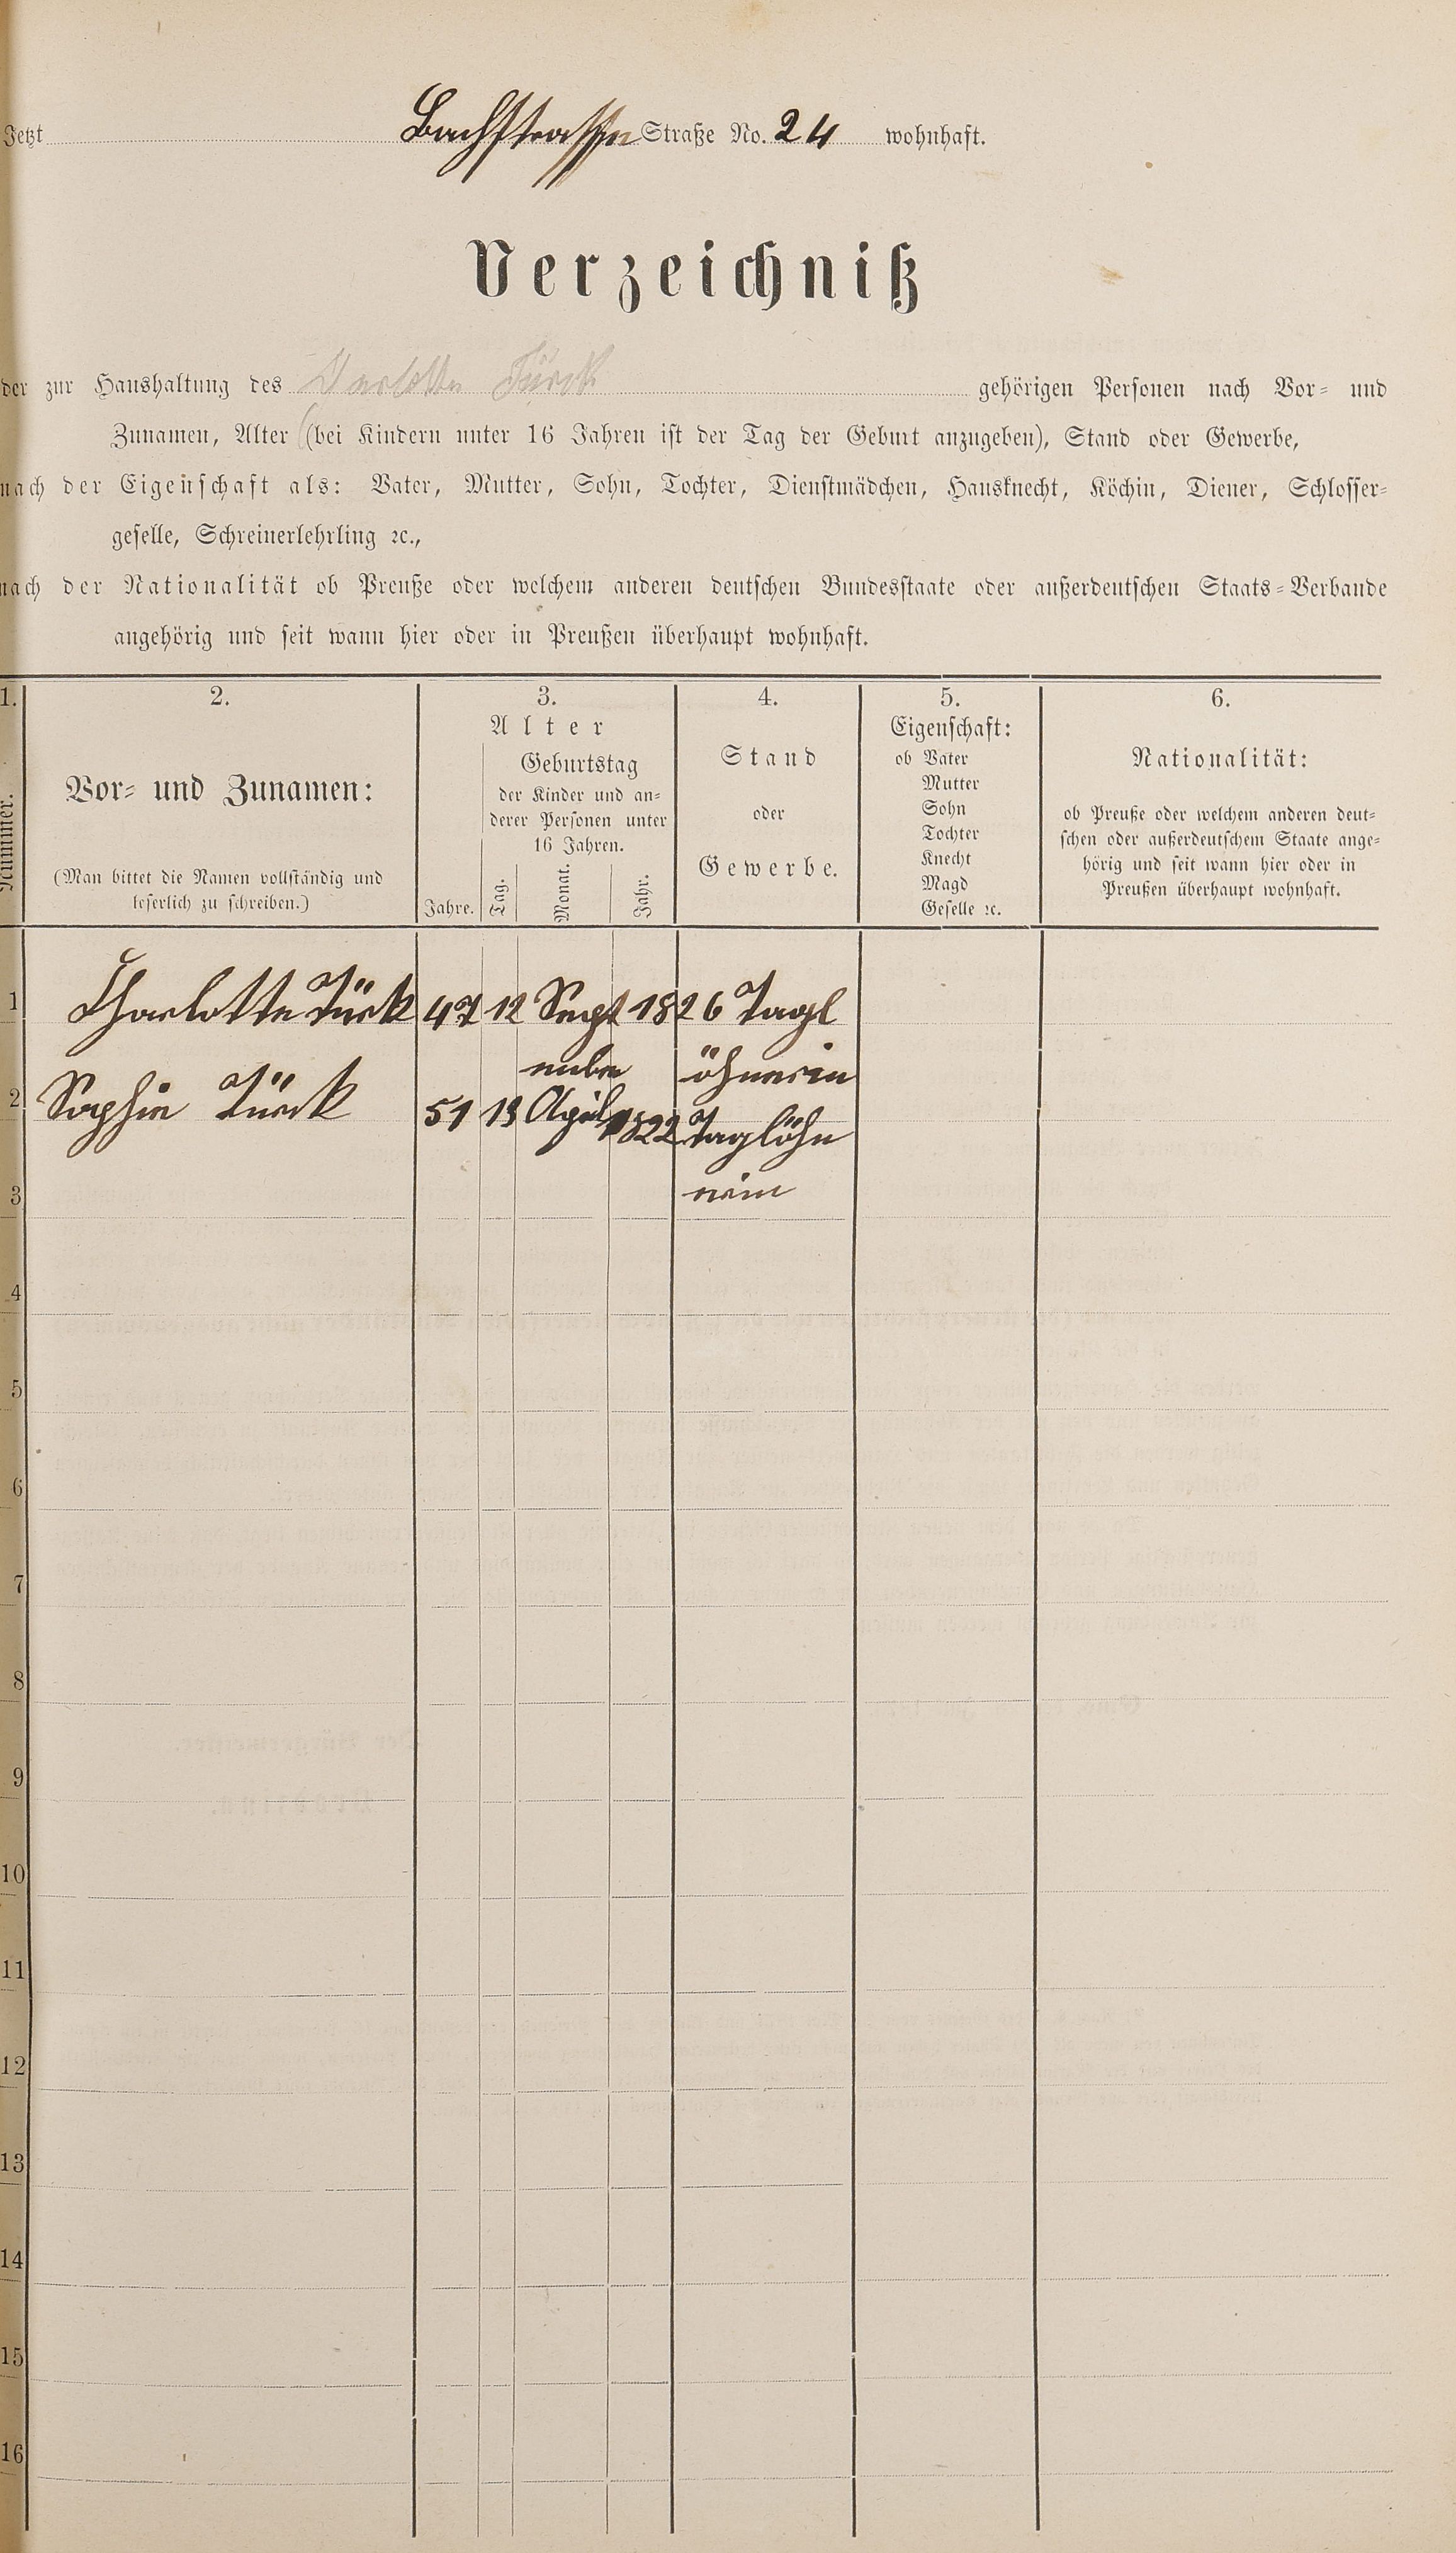 Jetzt Bachstrasse Straße No. 24 wohnhaft.
Verzeichniß
der zur Haushaltung des Türck gehörigen Personen nach Vor- und
Zunamen, Alter (bei Kindern unter 16 Jahren ist der Tag der Geburt anzugeben), Stand oder Gewerbe,
nach der Eigenschaft als: Vater, Mutter, Sohn, Tochter, Dienstmädchen, Hausknecht, Köchin, Diener, Schlosser-
geselle, Schreinerlehrling ꝛc.,
nach der Nationalität ob Preuße oder welchem anderen deutschen Bundesstaate oder außerdeutschen Staats-Verbande
angehörig und seit wann hier oder in Preußen überhaupt wohnhaft.
1.
Nummer.
2.
Vor- und Zunamen:
(Man bittet die Namen vollständig und
leserlich zu schreiben.)
3.
Alter
Jahre.
Geburtstag
der Kinder und an-
derer Personen unter
16 Jahren.
Tag.
Monat.
Jahr.
4.
Stand
oder
Gewerbe.
5.
Eigenschaft:
ob Vater
Mutter
Sohn
Tochter
Knecht
Magd
Geselle ꝛc.
6.
Nationalität:
ob Preuße oder welchem anderen deut-
schen oder außerdeutschem Staate ange-
hörig und seit wann hier oder in
Preußen überhaupt wohnhaft.
1 Charlotte Türk 47 12 Sept 1826 Tagl
ember öhnerin
2 Sophie Türk 51 13 April 1822 Taglöhn
erin
3
4
5
6
7
8
9
10
11
12
13
14
15
16